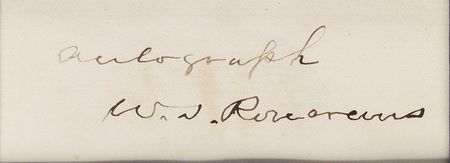 autograph
W. S. Rosecrans